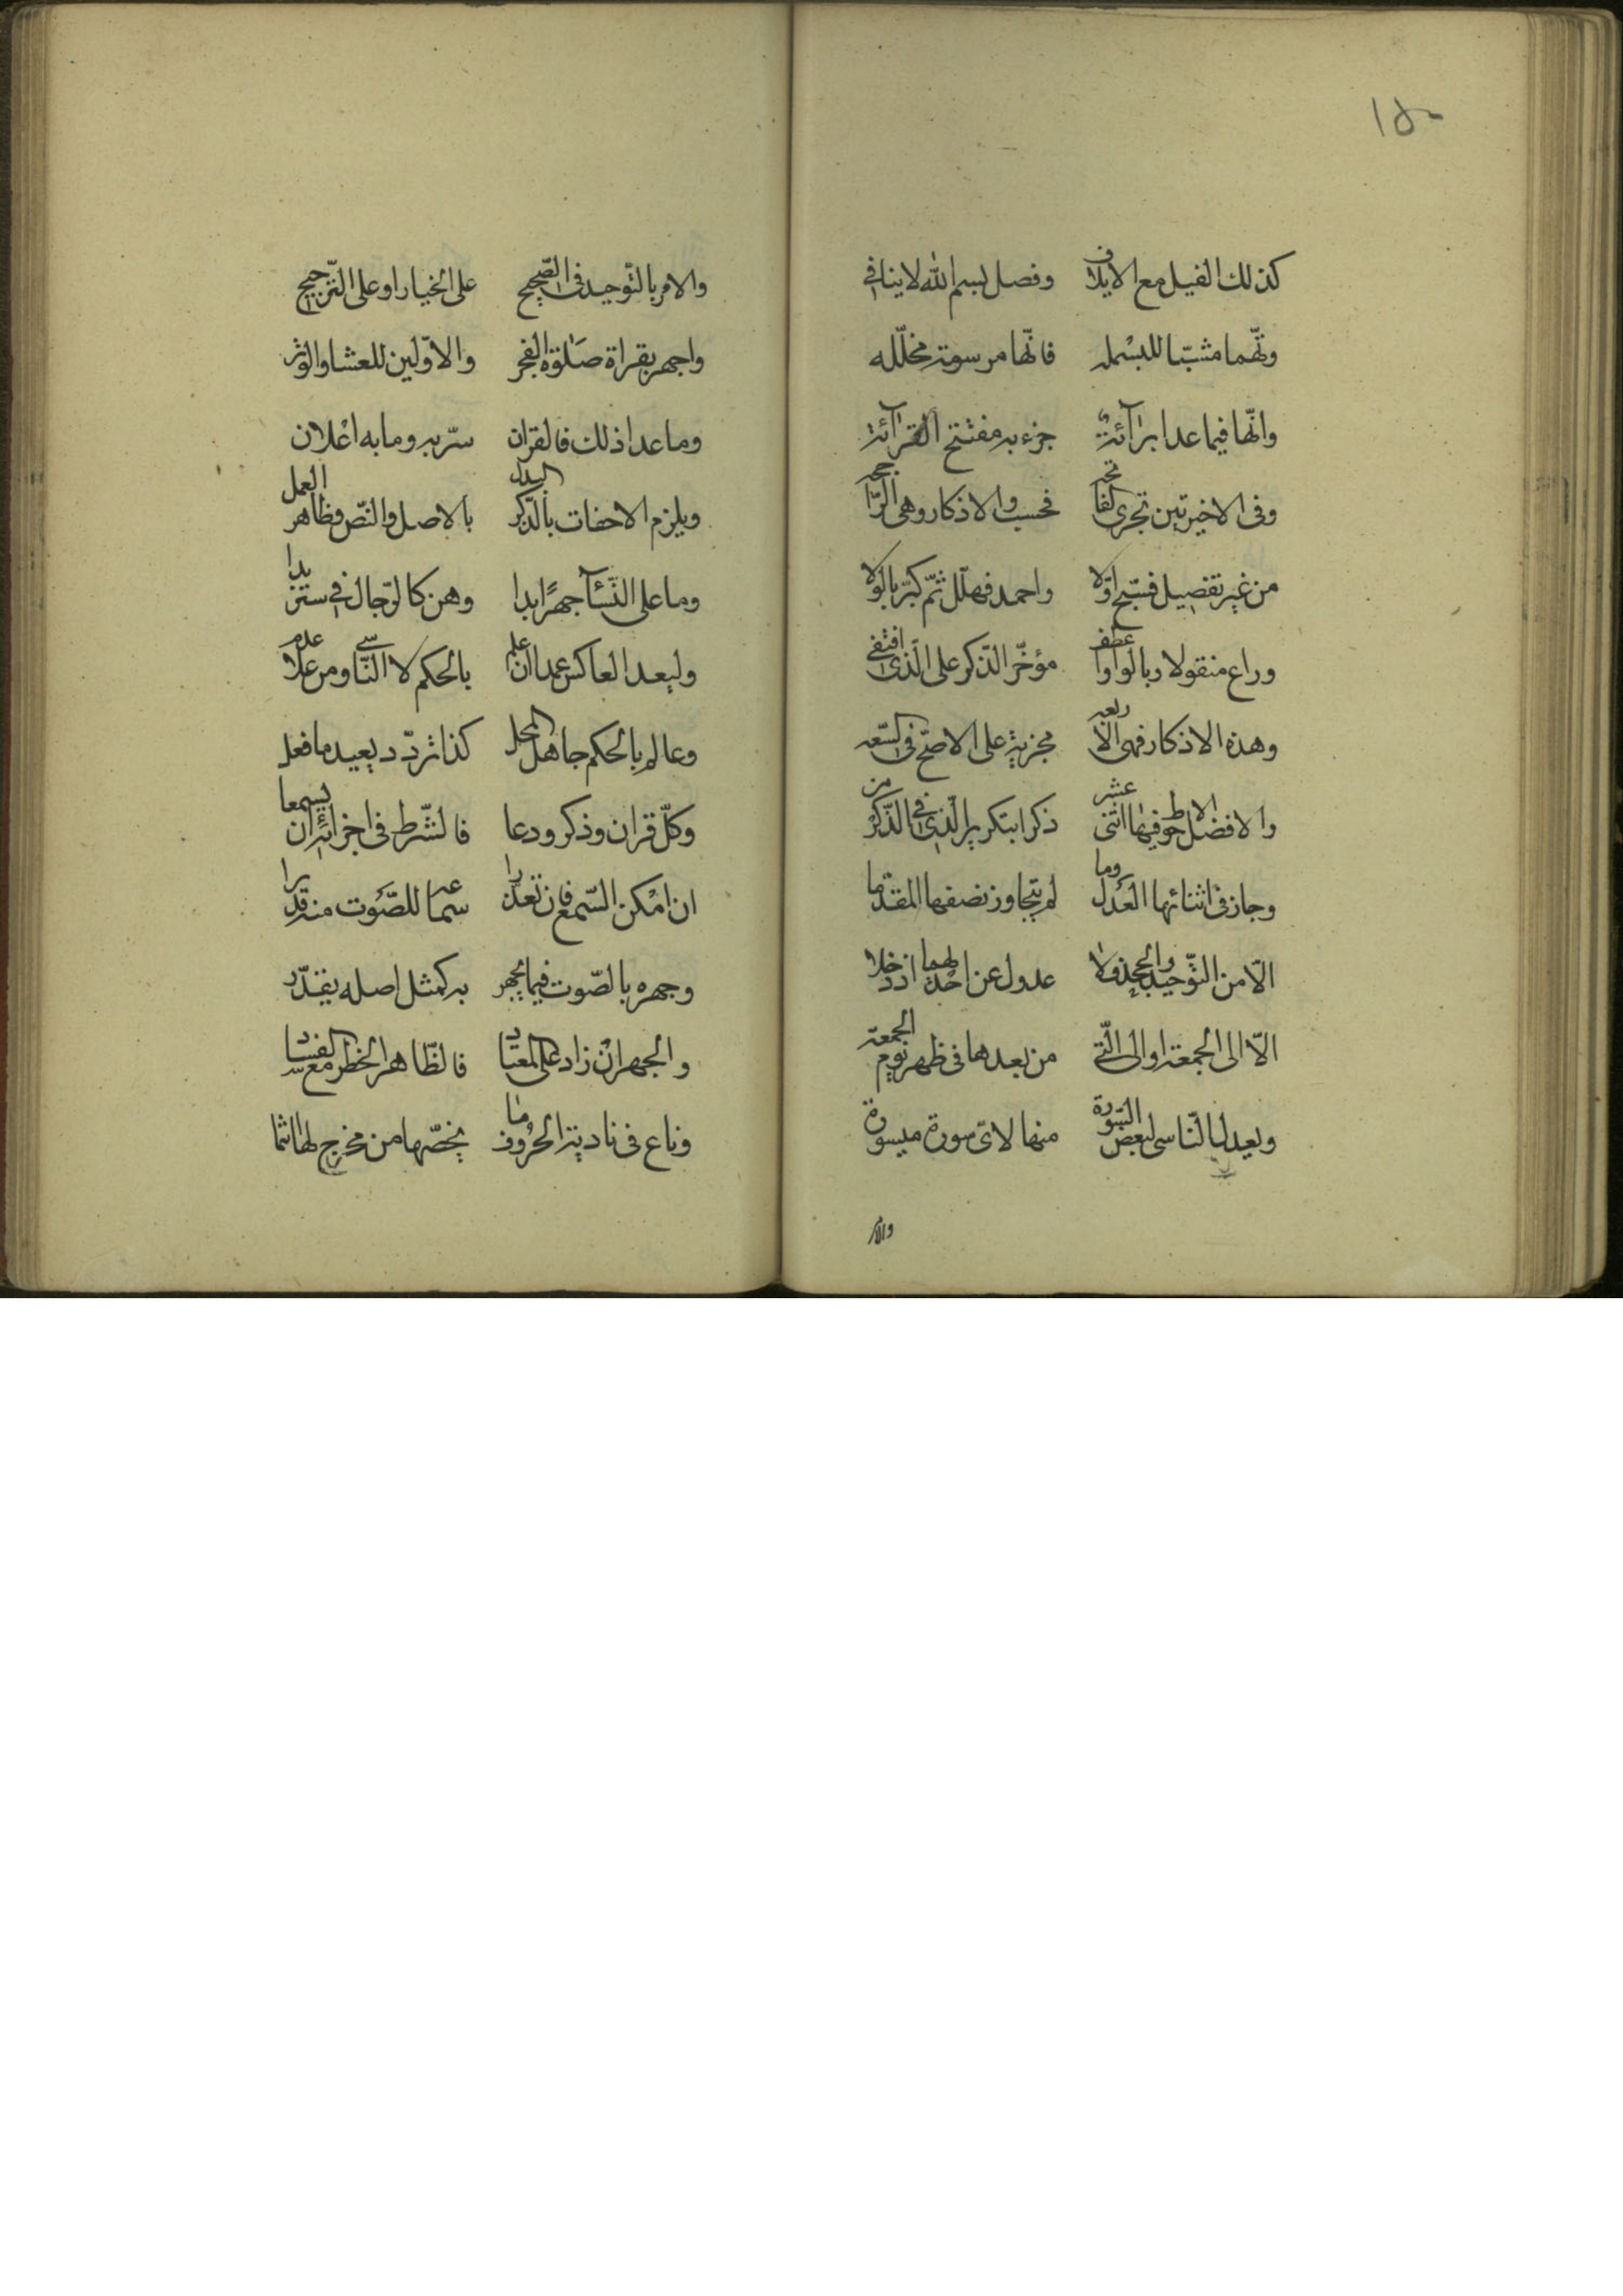 ١٥٠
كذلك الفيل مع الايلاف وفصل بسم الله لا ينافي
وتمّهما مشبّبا للبسمله فانّها مرسومة مخلّله
وانّها فيما عدا برآئة جزء به مفتتح القرآئة
وفي الاخيرتين تجري الفاتحه فحسب والاذكار وهي الرّاجحه
من غير تفصيل فسبّح اوّلا واحمد فهلّل ثمّ كبّر بالولا
وراع منقولا وبالواو اعطف مؤخّر الذّكر على الّذي اقتفي
وهذه الاذكار فهي الاربعه مجزية على الاصحّ في السّعه
والافضل الاحوط فيها اثنى عشر ذكرا بتكرير الّذي في الذّكر من
وجاز في اثنائها العدول وما لم يتجاوز نصفها المقدّما
الّا من التّوحيد والجحد فلا عدول عن احدٰيهما اذ دخلا
الّا الى الجمعة او الى الّتي من بعدها في ظهر يوم الجمعة
ويعدل النّاسي لبعض السّورة منها لايّ سورة ميسورة
والامر
والامر بالتّوحيد في الصّحيح على الخيار او على التّرجيح
واجهر بقراة صلوة الفجر والاوّلين للعشا والوتر
وما عدا ذلك فالقران سرّ به وما به اعلان
ويلزم الاخفات بالذّكر البدل بالاصل والنّص وظاهر العمل
وما على النّسآ جهرًا بدا وهن كالرّجال في ستر بدا
وليعد العاكس عمدا ان علم بالحكم لا النّاسي ومن علما عدم
وعالم بالحكم جاهل المحل كذا تردّد يعيد ما فعل
وكلّ قران وذكر ودعا فالشّرط في اجزائه ان يسمعا
ان امكن السّمع فان تعذّرا سمعا للصّوت منه قدّرا
وجهره بالصّوت فيما يجهر به كمثل اصله يقدّر
والجهر ان زاد على المعتاد فالظّاهر الخطر مع الفساد
وراع في تادية الحروف ما يخصّها من مخرج لها انتما